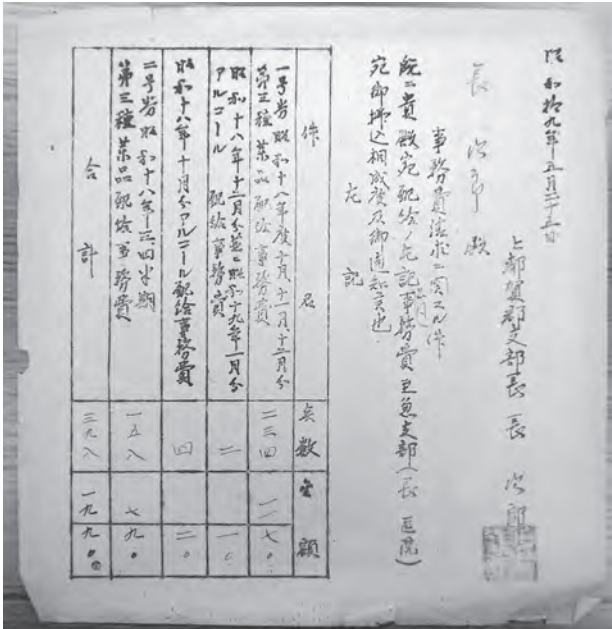 昭和拾九年五月二十二日
上都賀郡支部長 長 次郎
長 次郎 殿
事務費請求ニ関スル件
貴殿宛配給ノ左記事務費至急支部(長医院)
宛御払込相成度及御通知候也
左記
件名 数 金額
一号券昭和十八年度十月十一月十二月分
第三種薬品配給事務費 二三四 一一 七〇
昭和十八年十二月分並ニ昭和十九年一月分
アルコール 配給事務費 二 一〇
昭和十八年十月分アルコール配給事務費 四 二〇
二号券昭和十八年三、四半期
第三種薬品配給事務費 一五八 七 九〇
合計 三九八 一九 九〇